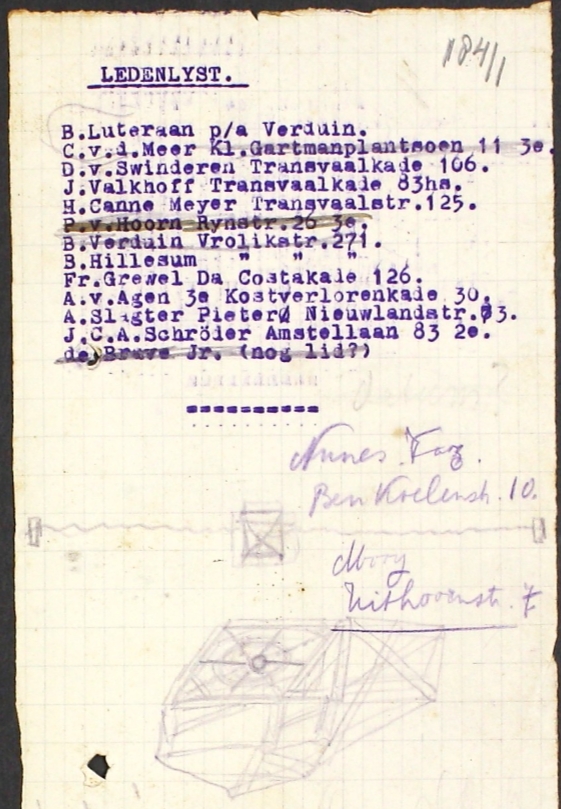 184/1
LEDENLYST.
B.Luteraan p/a Verduin.
C.v.d.Meer Kl.Gartmanplantsoen 11 3e.
D.v.Swinderen Transvaalkade 106.
J.Valkhoff Transvaalkade 83hs.
H.Canne Meyer Transvaalstr.125.
P.v.Hoorn Rynstr.26 3e.
B.Verduin Vrolikstr.271.
B.Hillesum " " "
Fr.Grewel Da Costakade 126.
A.v.Agen 3e Kostverlorenkade 30.
A.Slagter Pieter Nieuwlandstr. 3.
J.C.A.Schröder Amstellaan 83 2e.
de Brave Jr. (nog lid?)
Nunes Vaz.
10.
Mooy
Uithoornstr. 7